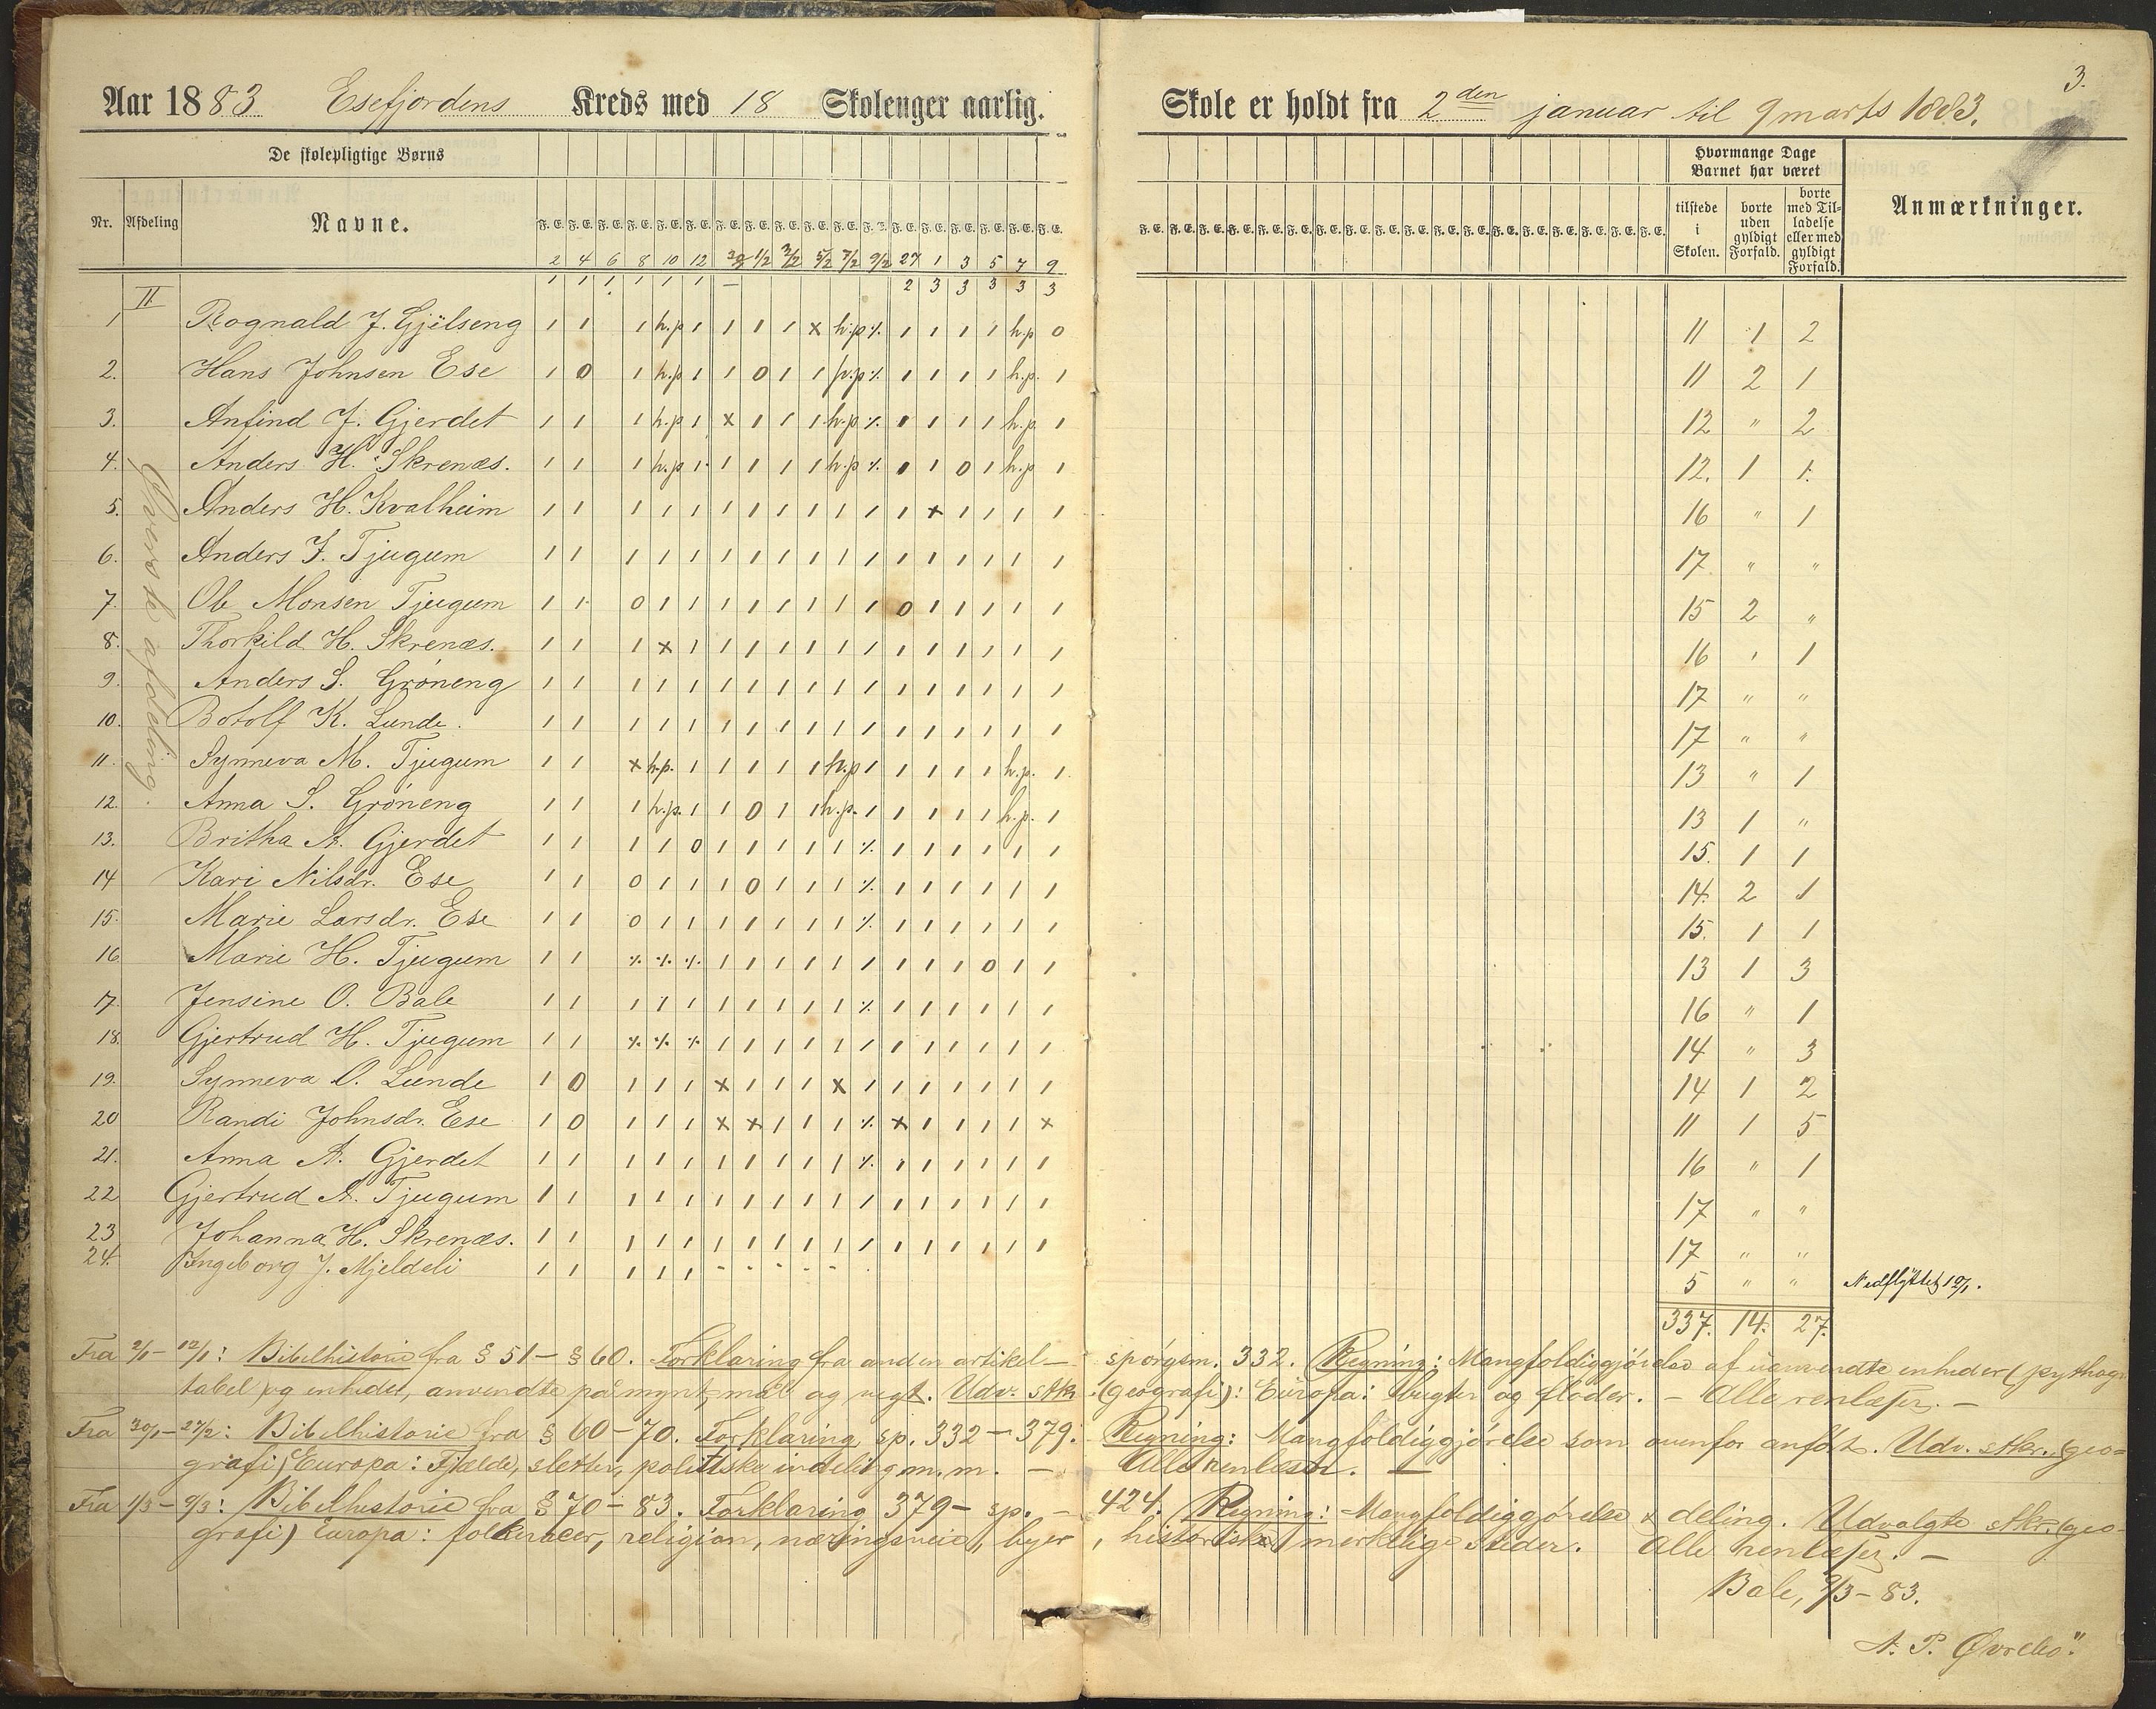 3.
Aar 1883 Esefjordens Kreds med 18 Skolenger aarlig. Skole er holdt fra 2den januar til 9 marts 1883.
De skolepligtige Børns
Hvormange Dage Barnet har været
Nr. Afdeling Navne. F. E. F. E. F. E. F. E. F. E. F. E. F. E. F. E. F. E. F. E. F. E. F. E. F. E. F. E. F. E. F. E. F. E. F. E. tilstede i Skolen. borte uden gyldigt Forfald. borte med Tilladelse eller med gyldigt Forfald. Anmærkninger.
2/1 4/1 6/1 8/1 10/1 12/1 30/1 1/2 3/2 5/2 7/2 9/2 27/2 1/3 3/3 5/3 7/3 9/3
II
Øverste afdeling.
1 Rognald J. Gjilseng 1 1 1 h.p 1 1 1 1 x h.p % 1 1 1 1 h.p 0 11 1 2
2. Hans Johnsen Ese 1 0 1 h.p 1 1 0 1 1 h.p % 1 1 1 1 h.p. 1 11 2 1
3. Anfind J. Gjerdet 1 1 1 h.p 1 x 1 1 1 h.p % 1 1 1 1 h.p. 1 12 " 2
4. Anders H. Skrenæs. 1 1 1 h.p 1 1 1 1 1 h.p % 1 1 0 1 h.p 1 12. 1 1.
5. Anders H. Kvalheim 1 1 1 1 1 1 1 1 1 1 1 1 x 1 1 1 1 16 " 1
6. Anders J. Tjugum 1 1 1 1 1 1 1 1 1 1 1 1 1 1 1 1 1 17 " "
7. Ole Monsen Tjugum 1 1 0 1 1 1 1 1 1 1 1 0 1 1 1 1 1 15 2 "
8. Thorkild H. Skrenæs. 1 1 1 x 1 1 1 1 1 1 1 1 1 1 1 1 1 16 " 1
9. Anders S. Gróneng 1 1 1 1 1 1 1 1 1 1 1 1 1 1 1 1 1 17 " "
10. Botolf K. Lunde. 1 1 1 1 1 1 1 1 1 1 1 1 1 1 1 1 1 17 " "
11. Synneva M. Tjugum 1 1 x h.p. 1 1 1 1 1 h.p 1 1 1 1 1 h.p. 1 13 " 1
12. Anna S. Gróneng 1 1 1 h.p. 1 1 0 1 1 h.p. 1 1 1 1 1 h.p. 1 13 1 "
13. Britha A. Gjerdet 1 1 1 1 0 1 1 1 1 1 % 1 1 1 1 1 1 15. 1 1
14 Kari Nilsdr. Ese 1 1 0 1 1 1 0 1 1 1 % 1 1 1 1 1 1 14. 2 1
15. Marie Larsdr. Ese 1 1 0 1 1 1 1 1 1 1 % 1 1 1 1 1 1 15. 1 1
16 Marie H. Tjugum 1 1 % % % 1 1 1 1 1 1 1 1 1 0 1 1 13 1 3
17. Jensine O. Bale 1 1 1 1 1 1 1 1 1 1 % 1 1 1 1 1 1 16 " 1
18. Gjertrud H. Tjugum 1 1 % % % 1 1 1 1 1 1 1 1 1 1 1 1 14 " 3
19. Synneva O. Lunde 1 0 1 1 1 x 1 1 1 x 1 1 1 1 1 1 1 14 1 2
20 Randi Johnsdr. Ese 1 0 1 1 1 x x 1 1 1 % x 1 1 1 1 x 11 1 5
21. Anna A. Gjerdet 1 1 1 1 1 1 1 1 1 1 % 1 1 1 1 1 1 16 " 1
22 Gjertrud A. Tjugum 1 1 1 1 1 1 1 1 1 1 1 1 1 1 1 1 1 17 " "
23 Johanna H. Skrenæs. 1 1 1 1 1 1 1 1 1 1 1 1 1 1 1 1 1 17 " "
24. Ingeborg J. Mjeldeli 1 1 1 1 1 - - - - - 5 " " Nedflyttet 12/1.
337. 14. 27.
Fra 2/1 - 12/1: Bibelhistorie fra § 51 - § 60. Forklaring fra anden artikel - spórgsm. 332. Regning: Mangfoldiggjórelse af uanvendte enheder (pythag.
tabel og enheder, anvendte på mynt, mål og vegt. Udv. stkr. (geografi): Europa: bugter og floder. - Alle renlæser. -
Fra 30/1 - 27/2: Bibelhistorie fra § 60 - 70. Forklaring sp. 332 - 379. Regning: Mangfoldiggjórelse som ovenfor anfórt. Udv. stkr. (geo-
grafi) Europa: Fjælde, sletter, politiske indeling m.m. - Alle renlæser. -
Fra 1/3 - 9/3: Bibelhistorie fra § 70 - 83. Forklaring 379 - sp. - 424. Regning: Mangfoldiggjórelse & deling. Udvalgte stkr. (geo-
grafi) Europa: folkeracer, religion, næringsveie, byer, historisk merkelige steder. Alle renlæser. -
Bale, 9/3 - 83.
A. P. Øvrebó.